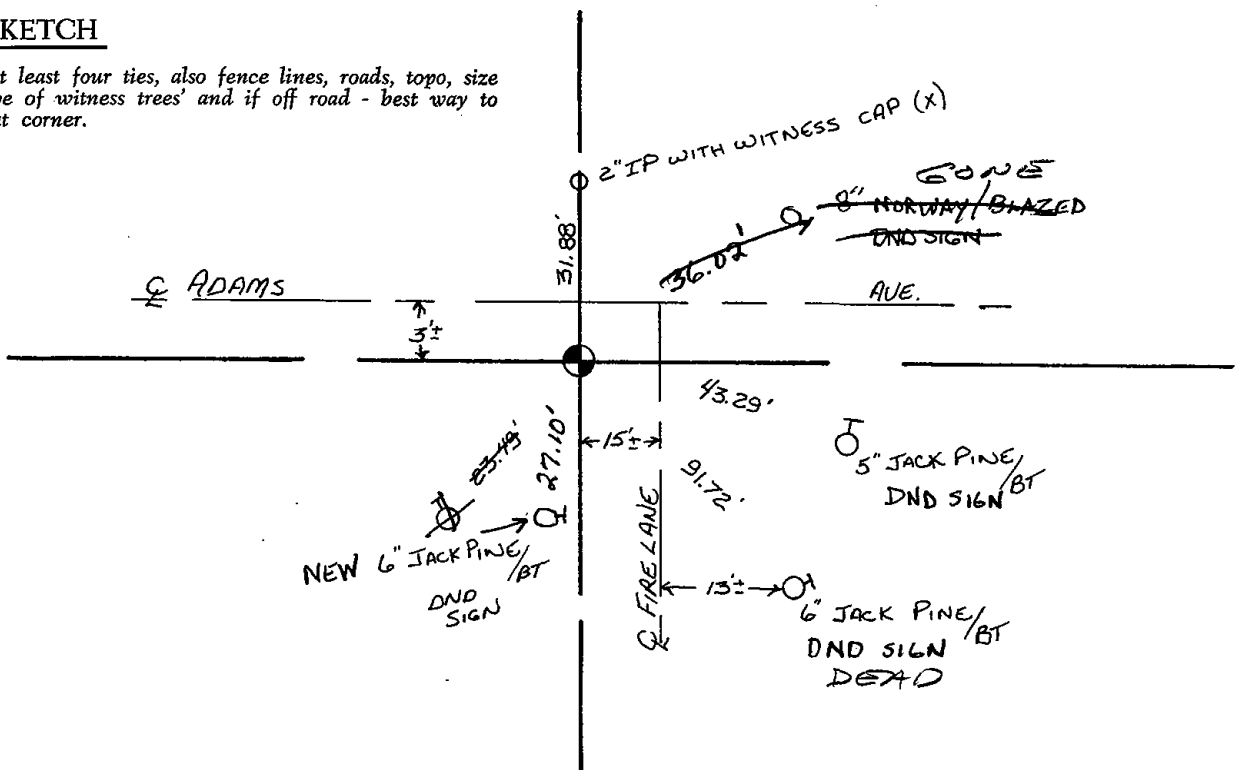 KETCH
t least four ties, also fence lines, roads, topo, size
pe of witness trees' and if off road - best way to
at corner.
2" IP WITH WITNESS CAP (X)
GONE
8" NORWAY/BLAZED
DND SIGN
31.88'
36.02'
℄ ADAMS
AVE.
3'±
43.29'
23.49'
27.10'
15'±
91.72'
5" JACK PINE/BT
DND SIGN
NEW 6" JACK PINE/BT
DND
SIGN
℄ FIRE LANE
13'±
6" JACK PINE/BT
DND SIGN
DEAD